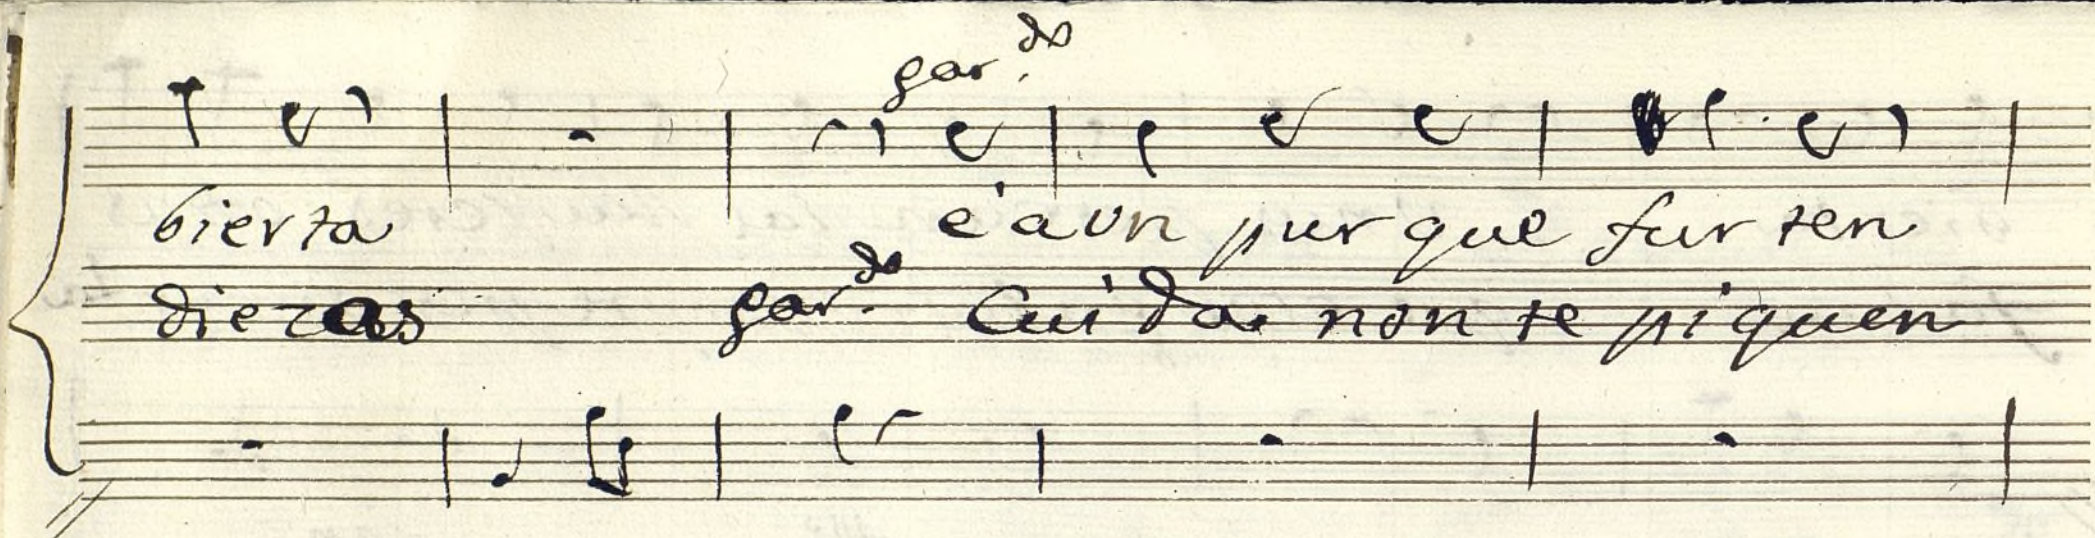 gar.do
bierta e aun pur que fur ten
diezas gar.do Cuidai non te piquen